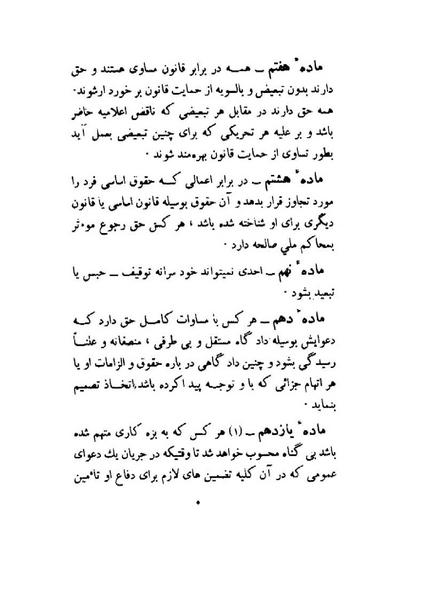 ماده هفتم ــ همه در برابر قانون مساوی هستند و حق
دارند بدون تبعیض و بالسویه از حمایت قانون بر خورد ارشوند۰
همه حق دارند در مقابل هر تبعیضی که ناقض اعلامیه حاضر
باشد و بر علیه هر تحریکی که برای چنین تبعیضی بعمل آید
بطور تساوی از حمایت قانون بهره‌مند شوند ۰
مادهٔ هشتم ــ در برابر اعمالی کــه حقوق اساسی فرد را
مورد تجاوز قرار بدهد و آن حقوق بوسیله قانون اساسی یا قانون
دیگری برای او شناخته شده باشد ، هر کس حق رجوع موٴثر
بمحاکم ملی صالحه دارد ۰
مادهٔ نهم ــ احدی نمیتواند خود سرانه توقیف ــ حبس یا
تبعید بشود ۰
مادهٔ دهم ــ هر کس با مساوات کامــل حق دارد کــه
دعوایش بوسیله داد گاه مستقل و بی طرفی ، منصفانه و علنــاً
رسیدگی بشود و چنین داد گاهی در باره حقوق و الزامات او یا
هر اتهام جزائی که با و توجــه پید اکرده باشد،اتخــاذ تصمیم
بنماید ۰
مادهٔ یازدهم ــ (۱) هر کس که به بزه کاری متهم شده
باشد بی گناه محسوب خواهد شد تا وقتیکه در جریان یك دعوای
عمومی که در آن کلیه تضمین های لازم برای دفاع او تاٴمین